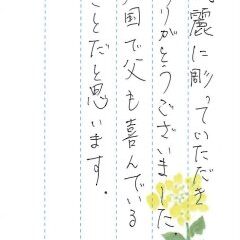 麗に彫っていただき
りがとうございました。
国で父も喜んでいる
ことだと思います。